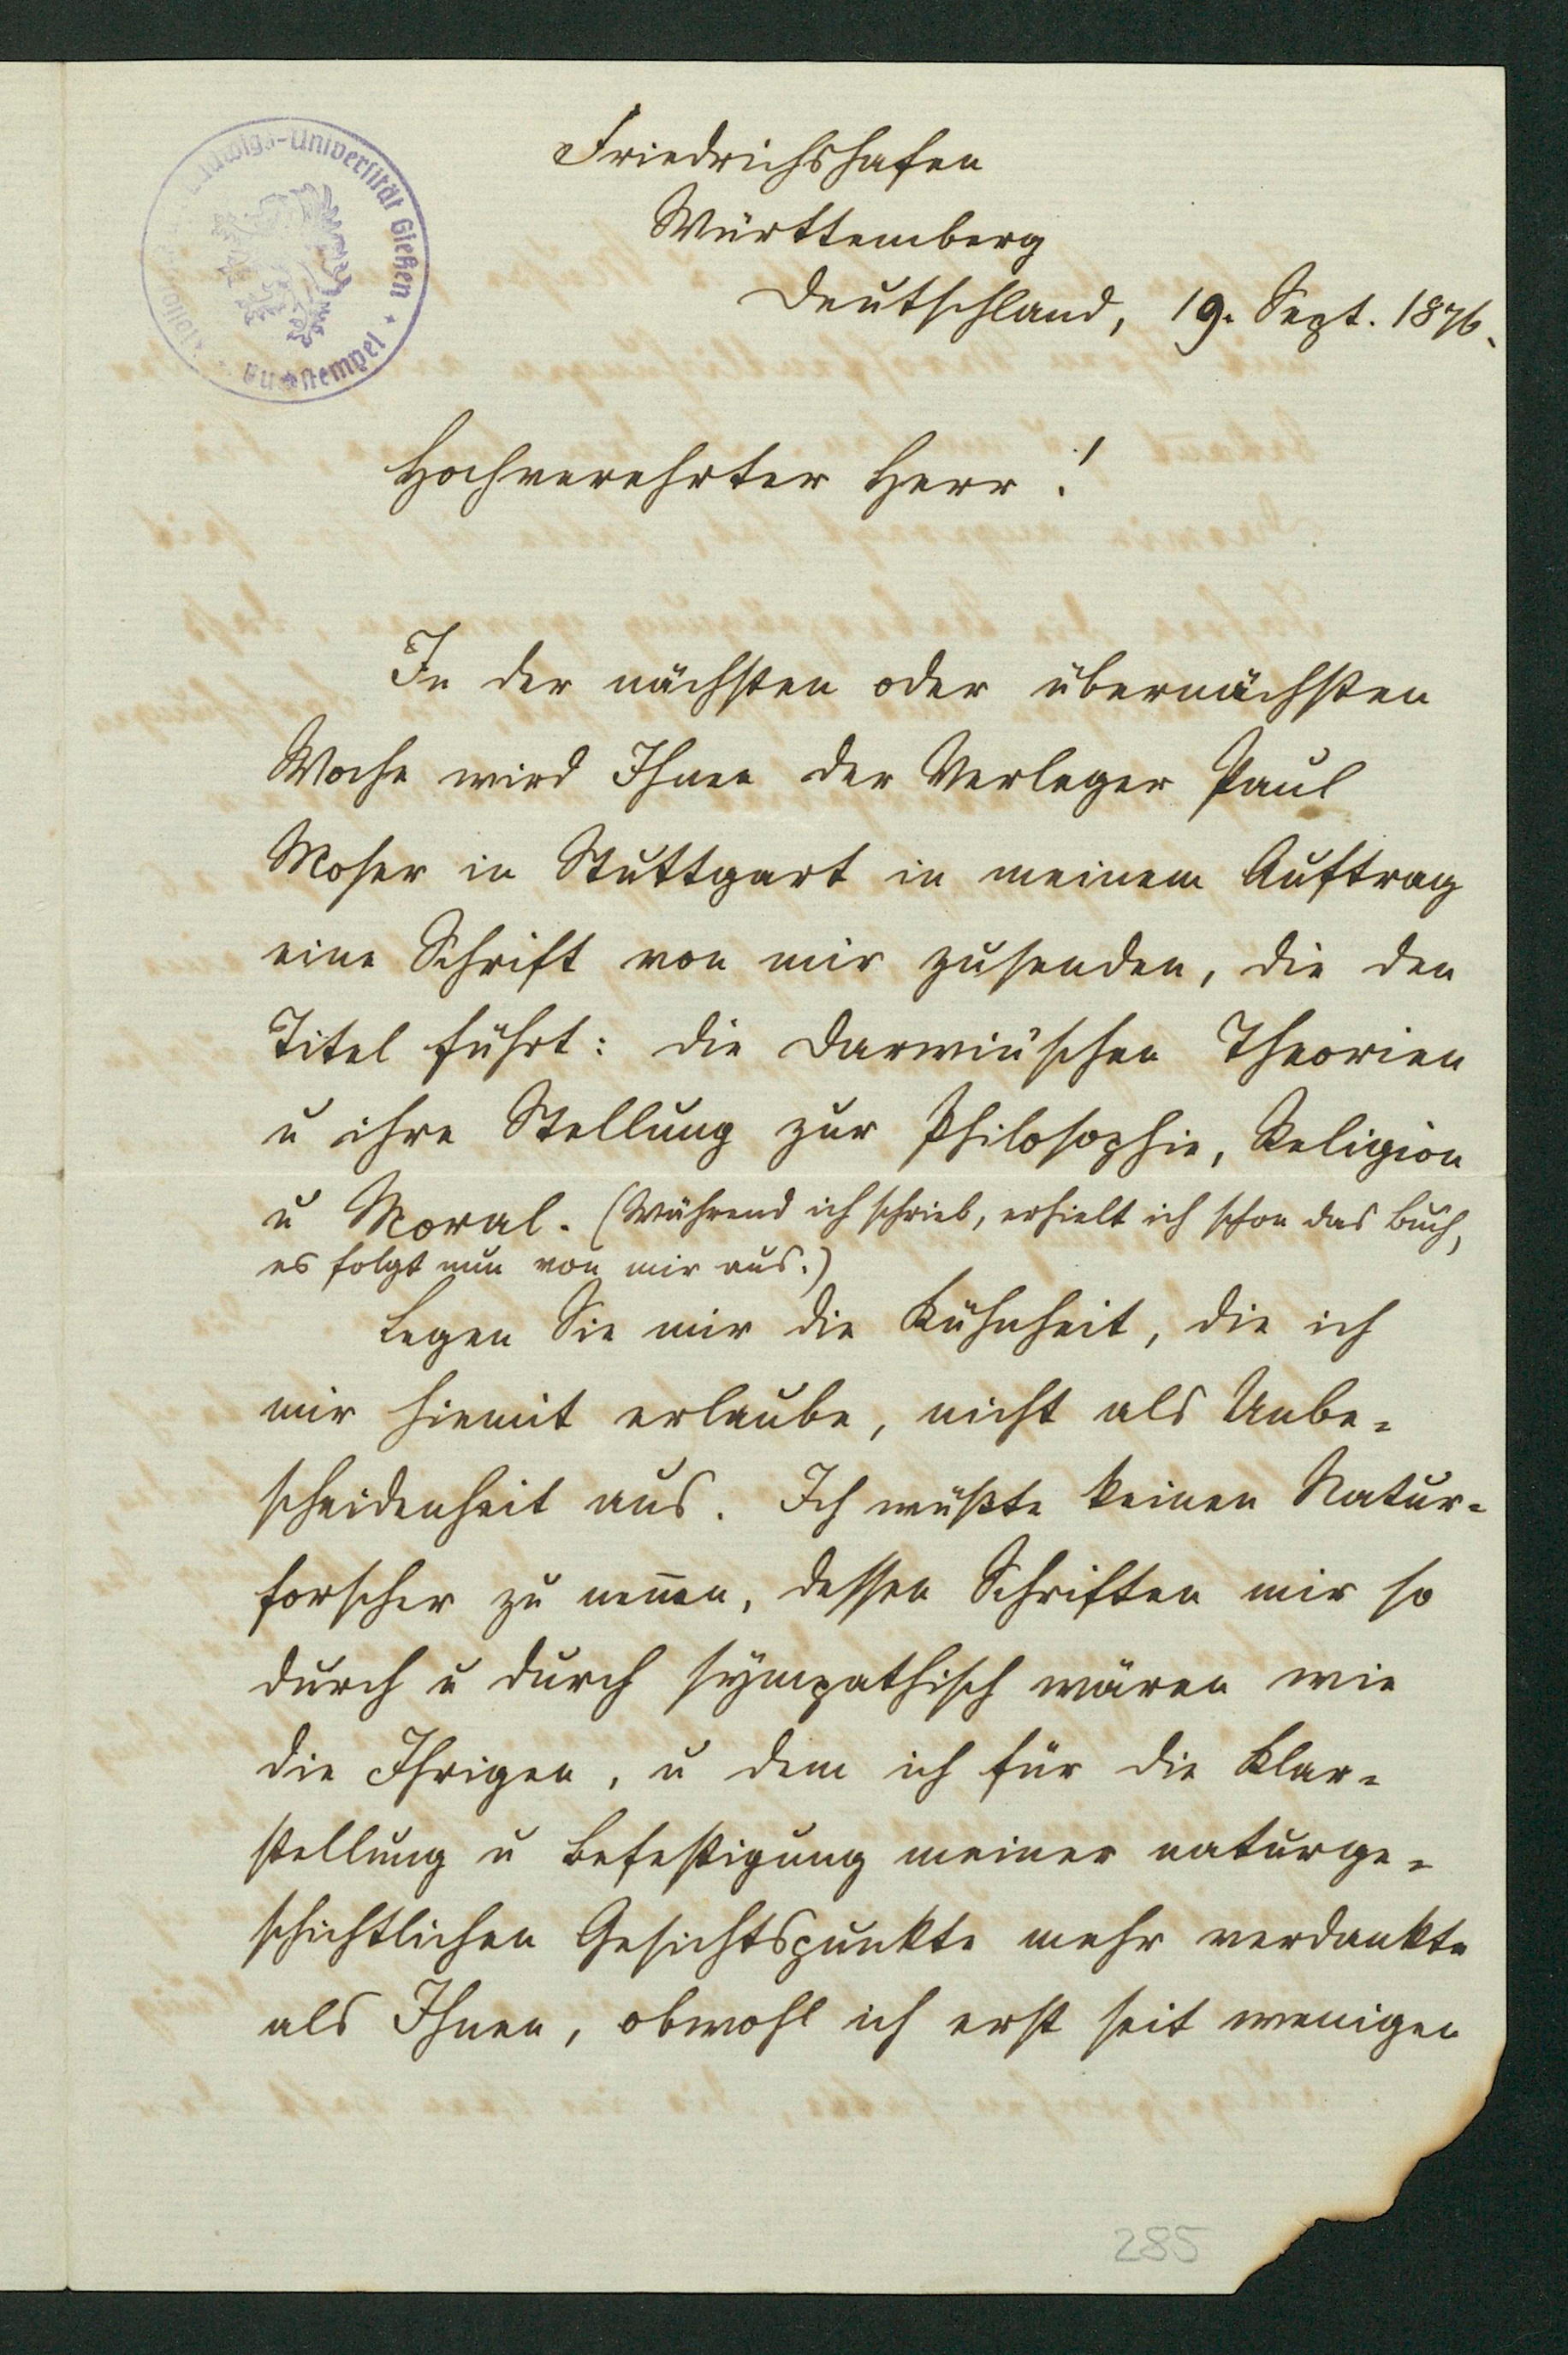 Ludwigs-Universität Gießen
Friedrichshafen
Württemberg
Deutschland, 19. Sept. 1876.
Hochverehrter Herr!
In der nächsten oder übernächsten
Woche wird Ihnen der Verleger Paul
Moser in Stuttgart in meinem Auftrag
eine Schrift von mir zusenden, die den
Titel führt: die Darwin'schen Theorien
u ihre Stellung zur Philosophie, Religion
u Moral. (Während ich schrieb, erhielt ich schon das Buch,
es folgt nun von mir aus.)
Legen Sie mir die Kühnheit, die ich
mir hiemit erlaube, nicht als Unbe-
scheidenheit aus. Ich wüßte keinen Natur-
forscher zu nen̄en, dessen Schriften mir so
durch u durch sympathisch wären wie
die Ihrigen, u dem ich für die Klar-
stellung u Befestigung meiner naturge-
schichtlichen Gesichtspunkte mehr verdankte
als Ihnen, obwohl ich erst seit wenigen
285